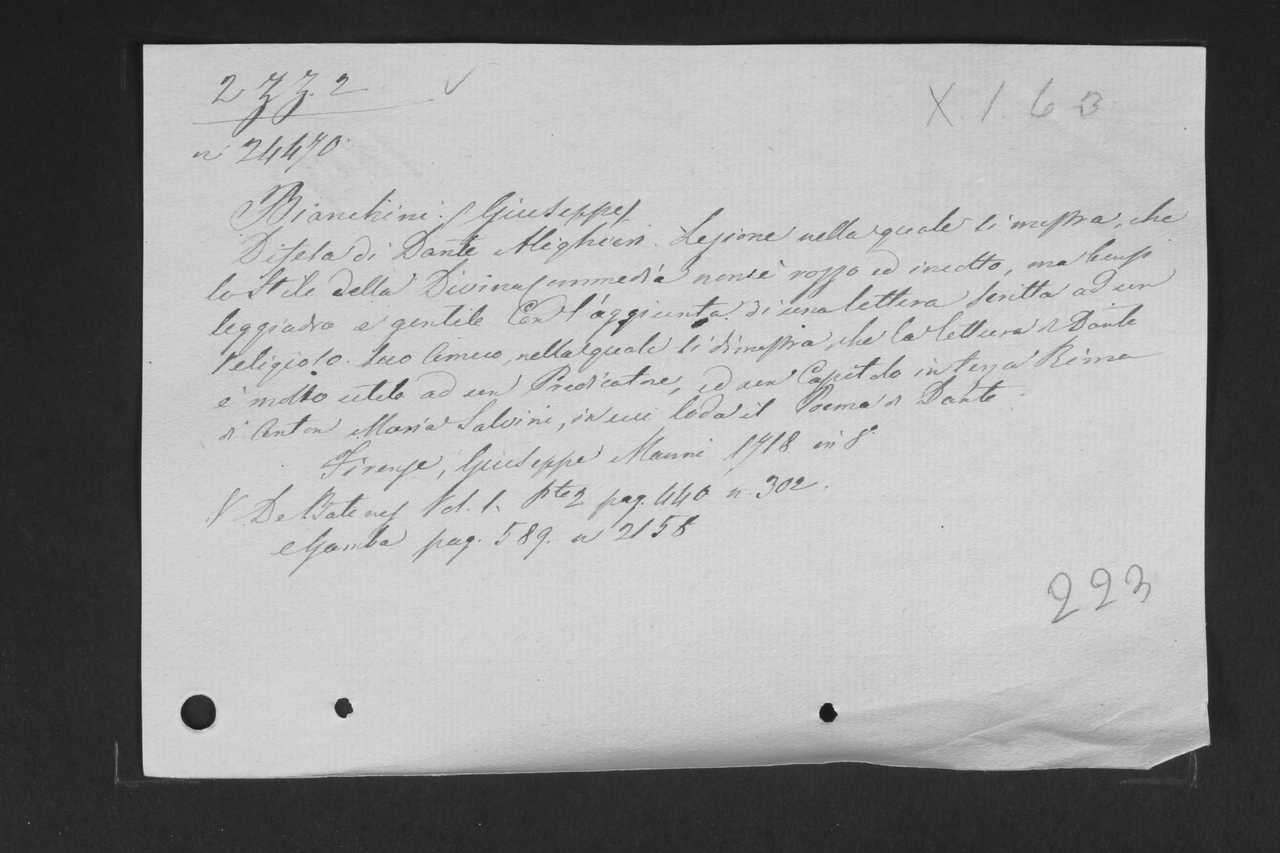 2 Z Z. 2
X. 1. 6 3
n° 24470
Bianchini (Giuseppe)
Difesa di Dante Alighieri. Lezione nella quale si mostra, che
lo Stile della Divina Commedia non è rozzo ed inedtto, ma bensì
leggiadro e gentile Con l'aggiunta di una lettera scritta ad un
religioso suo Amico, nella quale si dimostra, che la lettura di Dante
è molto utile ad un Predicatore, ed un Capitolo in terza Rima
di Anton Maria Salvini, in cui loda il Poema di Dante.
Firenze, Giuseppe Manni 1718 in 8°
V. De Batines Vol. 1. Pte 2 pag. 440 n. 302.
e Gamba pag. 589. n 2158
223